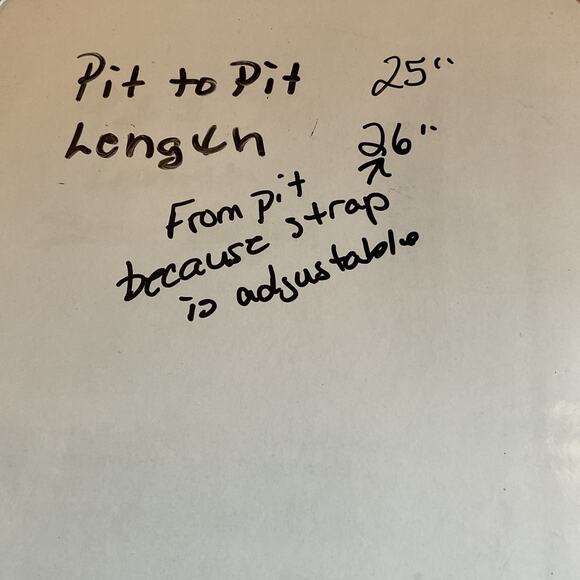 Pit to Pit 25"
Length 26"
From pit
because strap
is adjustable